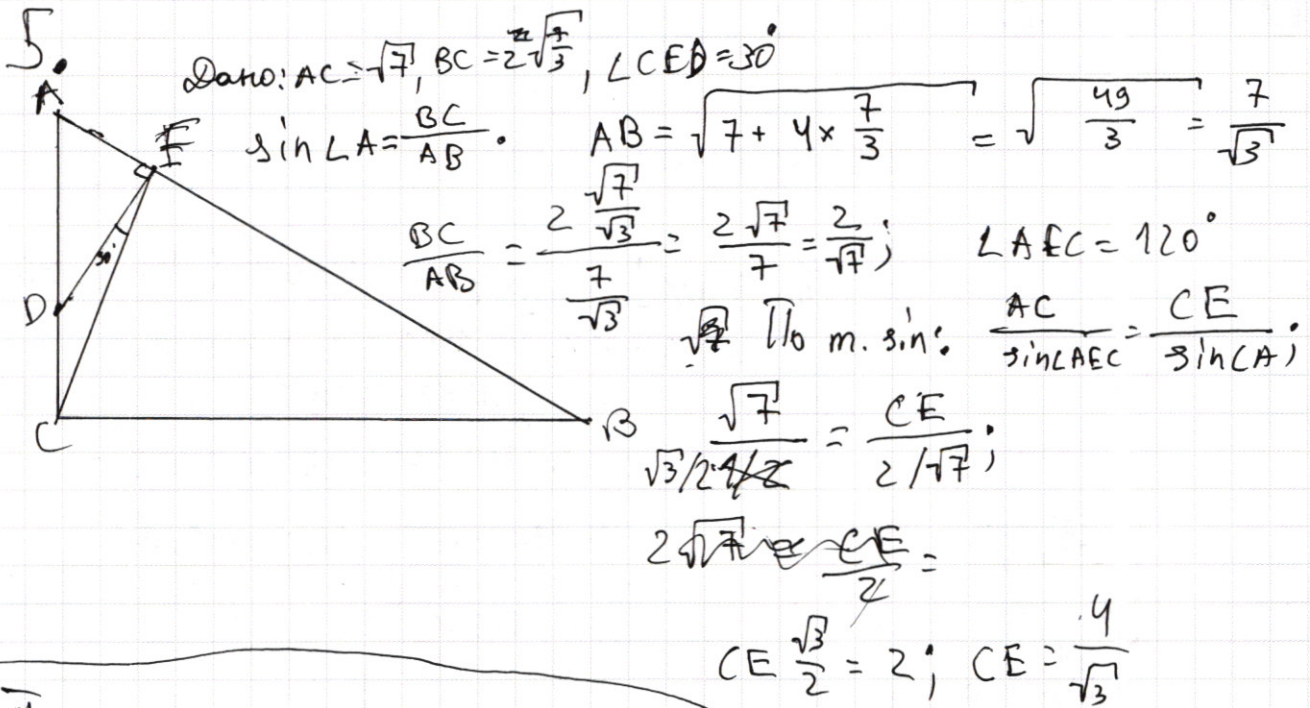 5.
Дано: AC = √7, BC = 2√(7/3), ∠CED = 30°
A
E
sin∠A = BC/AB . AB = √(7 + 4 × 7/3) = √(49/3) = 7/√3
BC/AB = (2 √7/√3)/(7/√3) = 2√7/7 = 2/√7; ∠AEC = 120°
30°
D
По т. sin: AC/sin∠AEC = CE/sin∠A;
C
B
√7/(√3/2) = CE/(2/√7);
2√7 = CE/2 =
CE √3/2 = 2; CE = 4/√3